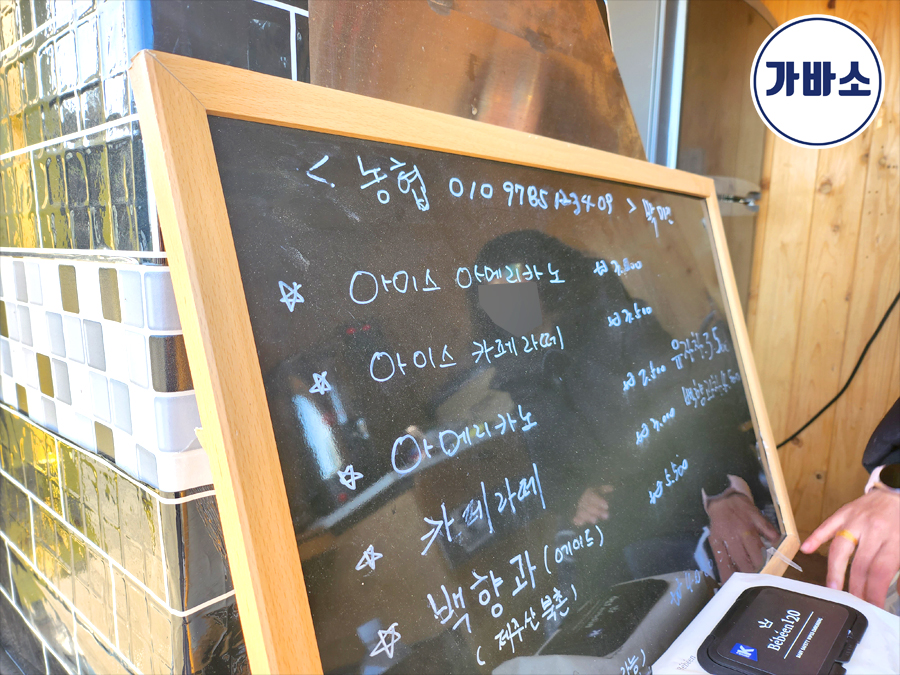 가바소
< 농협 010 9785 123409 >
☆ 아이스 아메리카노
☆ 아이스 카페라떼 ₩3,500
☆ 아메리카노 ₩2,500
☆ 카페라떼 ₩3,000
☆ 백향과 (에이드) ₩5,500
( 제주산 북촌 )
가능)
Bébéen120